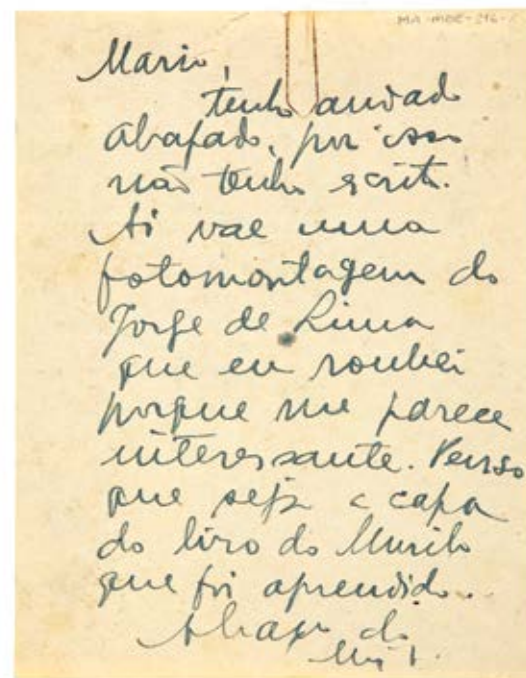 MA-MDE-216-
Mario,
tenho andado
abafado, por isso
não tenho escrito.
Ai vae uma
fotomontagem do
Jorge de Lima
que eu roubei
porque me parece
interessante. Penso
que seja a capa
do livro do Murilo
que foi aprendido.
Abraço do